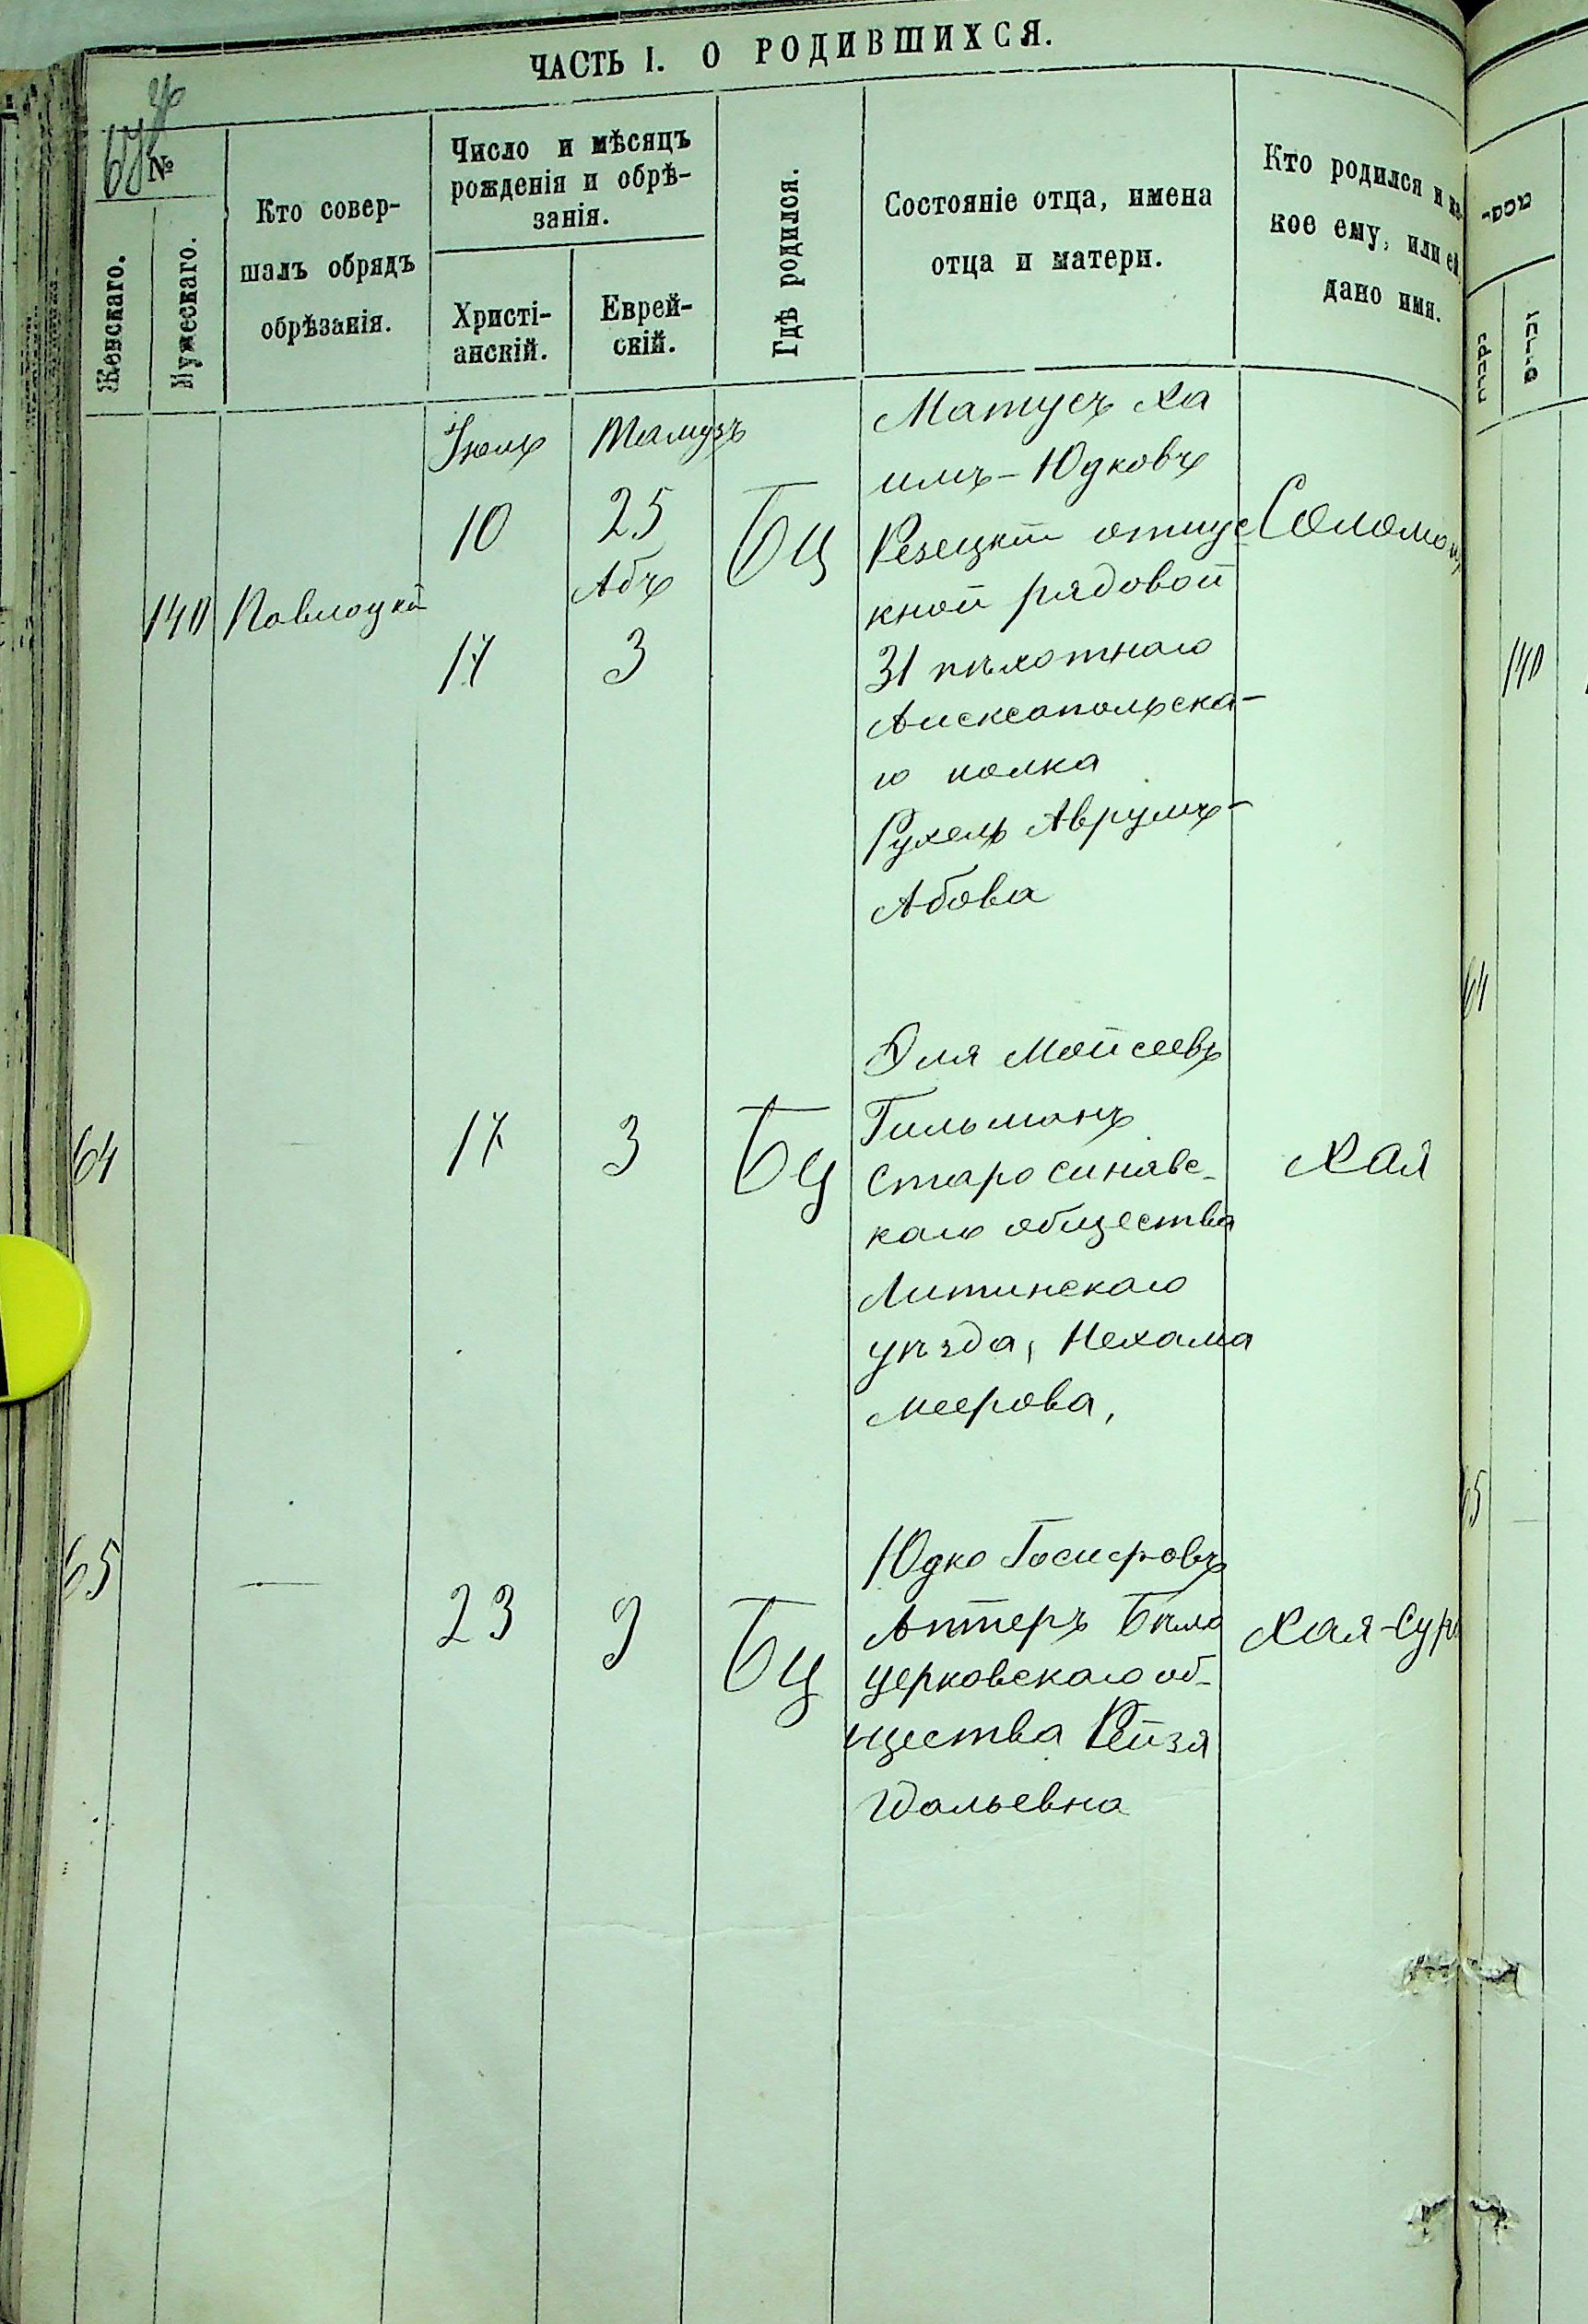 ЧАСТЬ I. О РОДИВШИХСЯ.
№
Женскаго.
Мужескаго.
Кто совер-
шалъ обрядъ
обрѣзанія.
Число и мѣсяцъ
рожденія и обрѣ-
занія.
Христі-
анскій.
Еврей-
скій.
Гдѣ родился.
Состояніе отца, имена
отца и матери.
Кто родился и ка-
кое ему, или ей
дано имя.
140 Павлоцкій
Іюль Тамузъ
10 25
Абъ
17 3
БЦ
Матусъ Ха
имъ-Юдковъ
Резецкій отпус
кной рядовой
31 пѣхотнаго
Алексопольска-
го полка
Рухель Аврумъ-
Абова
Соломонъ
64
17 3 БЦ
Эля Мойсеевъ
Гильманъ
Старосинявс-
каго общества
Литинскаго
уѣзда, Нехама
Меерова,
Хая
65 —
23 9 БЦ
Юдко
Аптеръ Бѣло
церковскаго об-
щества Рейзя
Хая-Сура
140
64